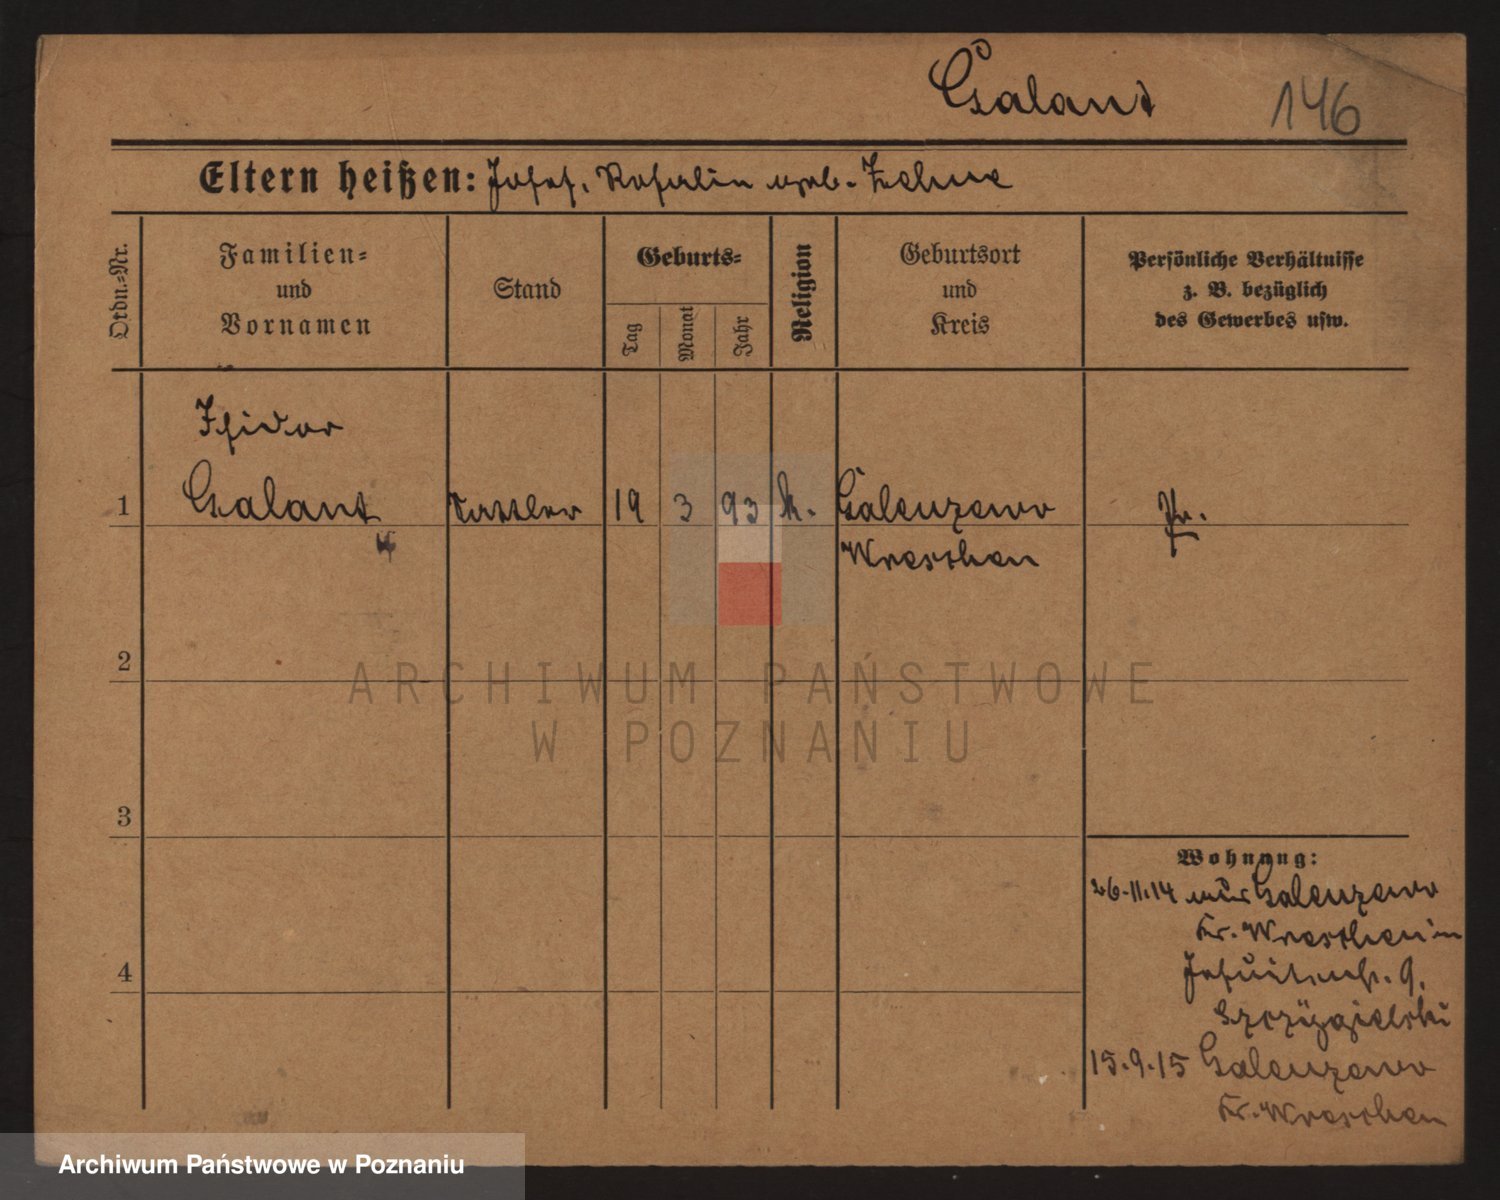 Galant 146
Eltern heißen: Josef, Rosalie geb. Zelme
Ordn.-Nr.
Familien-
und
Vornamen
Stand
Geburts-
Tag
Monat
Jahr
Religion
Geburtsort
und
Kreis
Persönliche Verhältnisse
z. B. bezüglich
des Gewerbes usw.
Isidor
1 Galant Sattler 19 3 93 k. Galenzewo Pr.
Wreschen
2
3
4
Wohnung:
26.11.14 aus Galenzewo
Kr. Wreschen in
Jesuitenstr. 9.
15.9.15 Galenzewo
Kr. Wreschen
ARCHIWUM PAŃSTWOWE
W POZNANIU
Archiwum Państwowe w Poznaniu